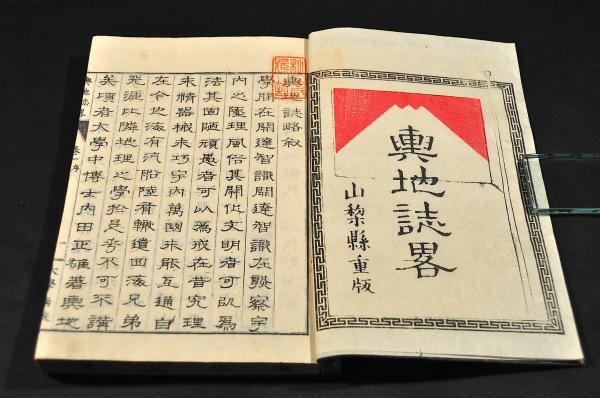 輿地誌畧
山黎縣重版
輿地誌略叙
學問在開達智識開達智識在熟察宇
内之墬理風俗其開化文明者可以爲
法其固陋頑愚者可以爲戒在昔究理
未精器械未巧宇内萬國未能互通自
在今也海有船陸有四海兄弟
天涯比隣地理之學於是乎不可不講
矣頃者大學中博士内田正雄著輿地
輿地誌畧 卷一序